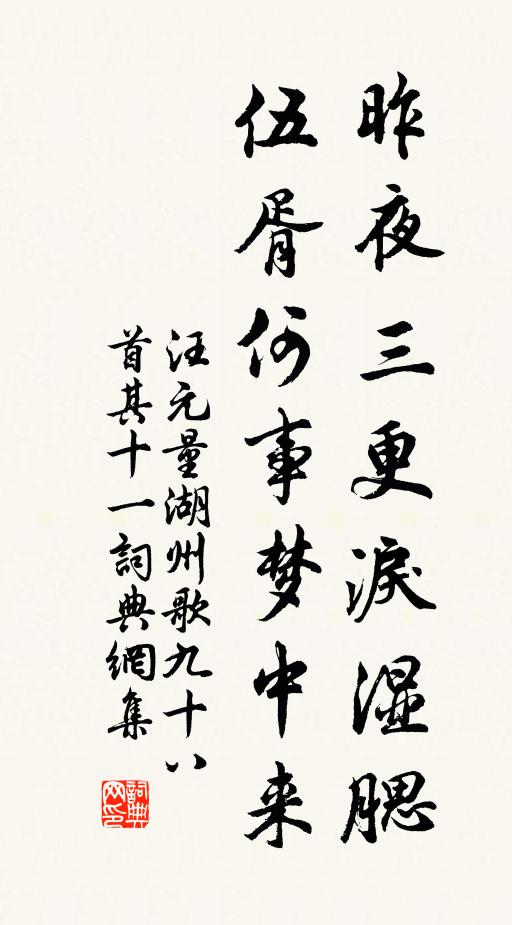 昨夜三更淚湿腮
伍胥何事梦中来
汪元量湖州歌九十八
首其十一詞典網集
詞典网印